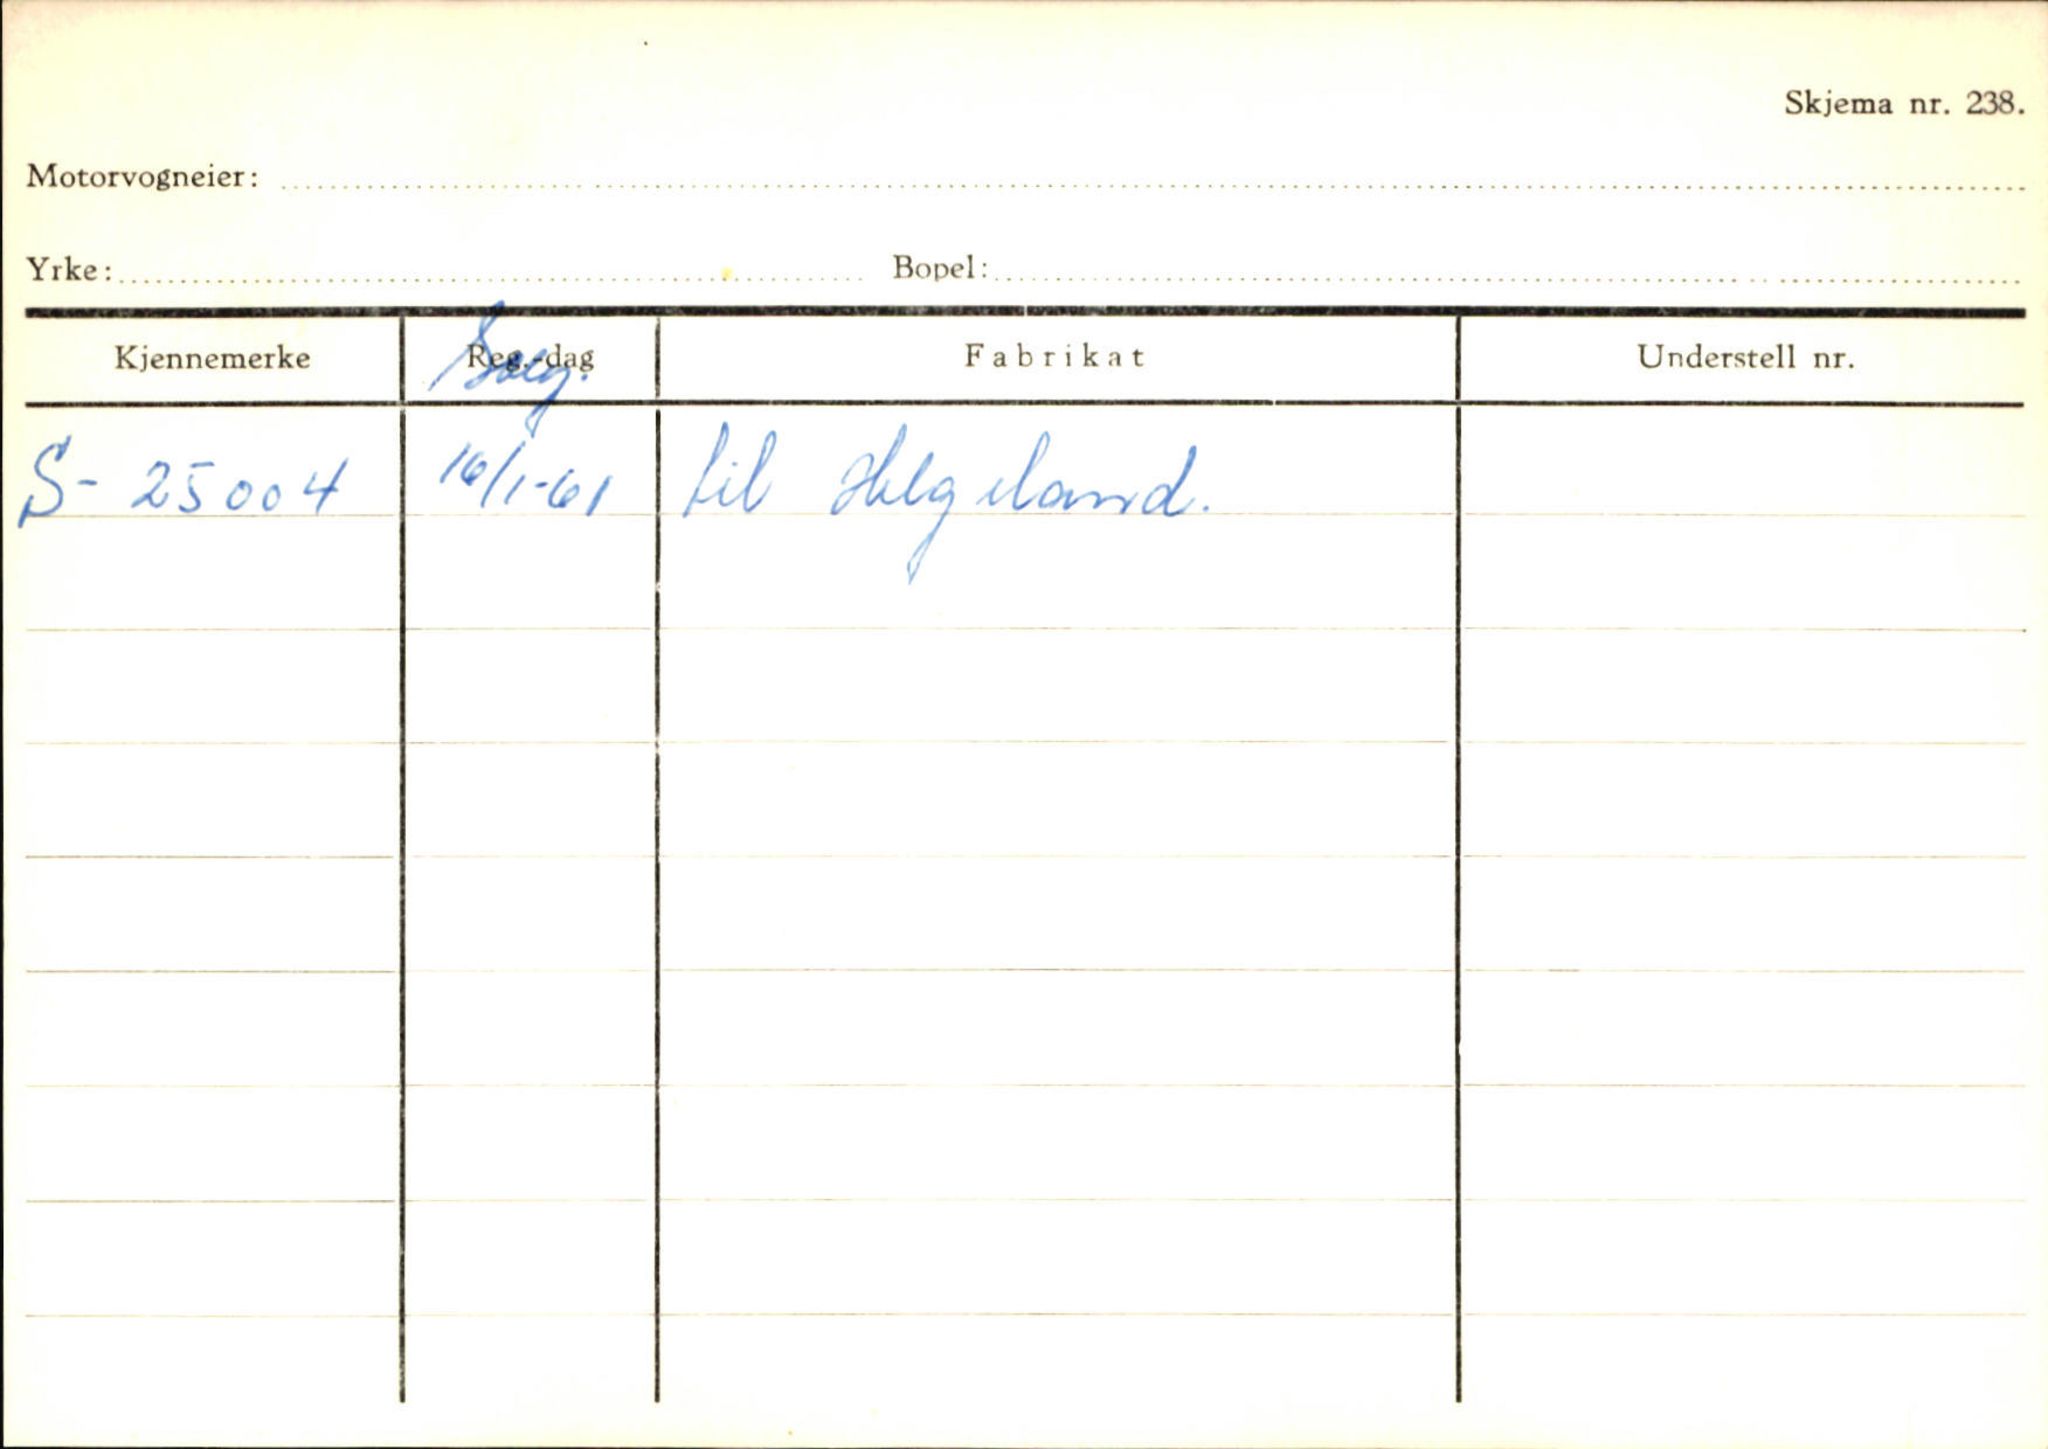 Skjema nr. 238.
Motorvogneier:
Yrke: Bopel:
Kjennemerke Reg.-dag Fabrikat Understell nr.
S- 25004 16/1-61 til Helgeland.